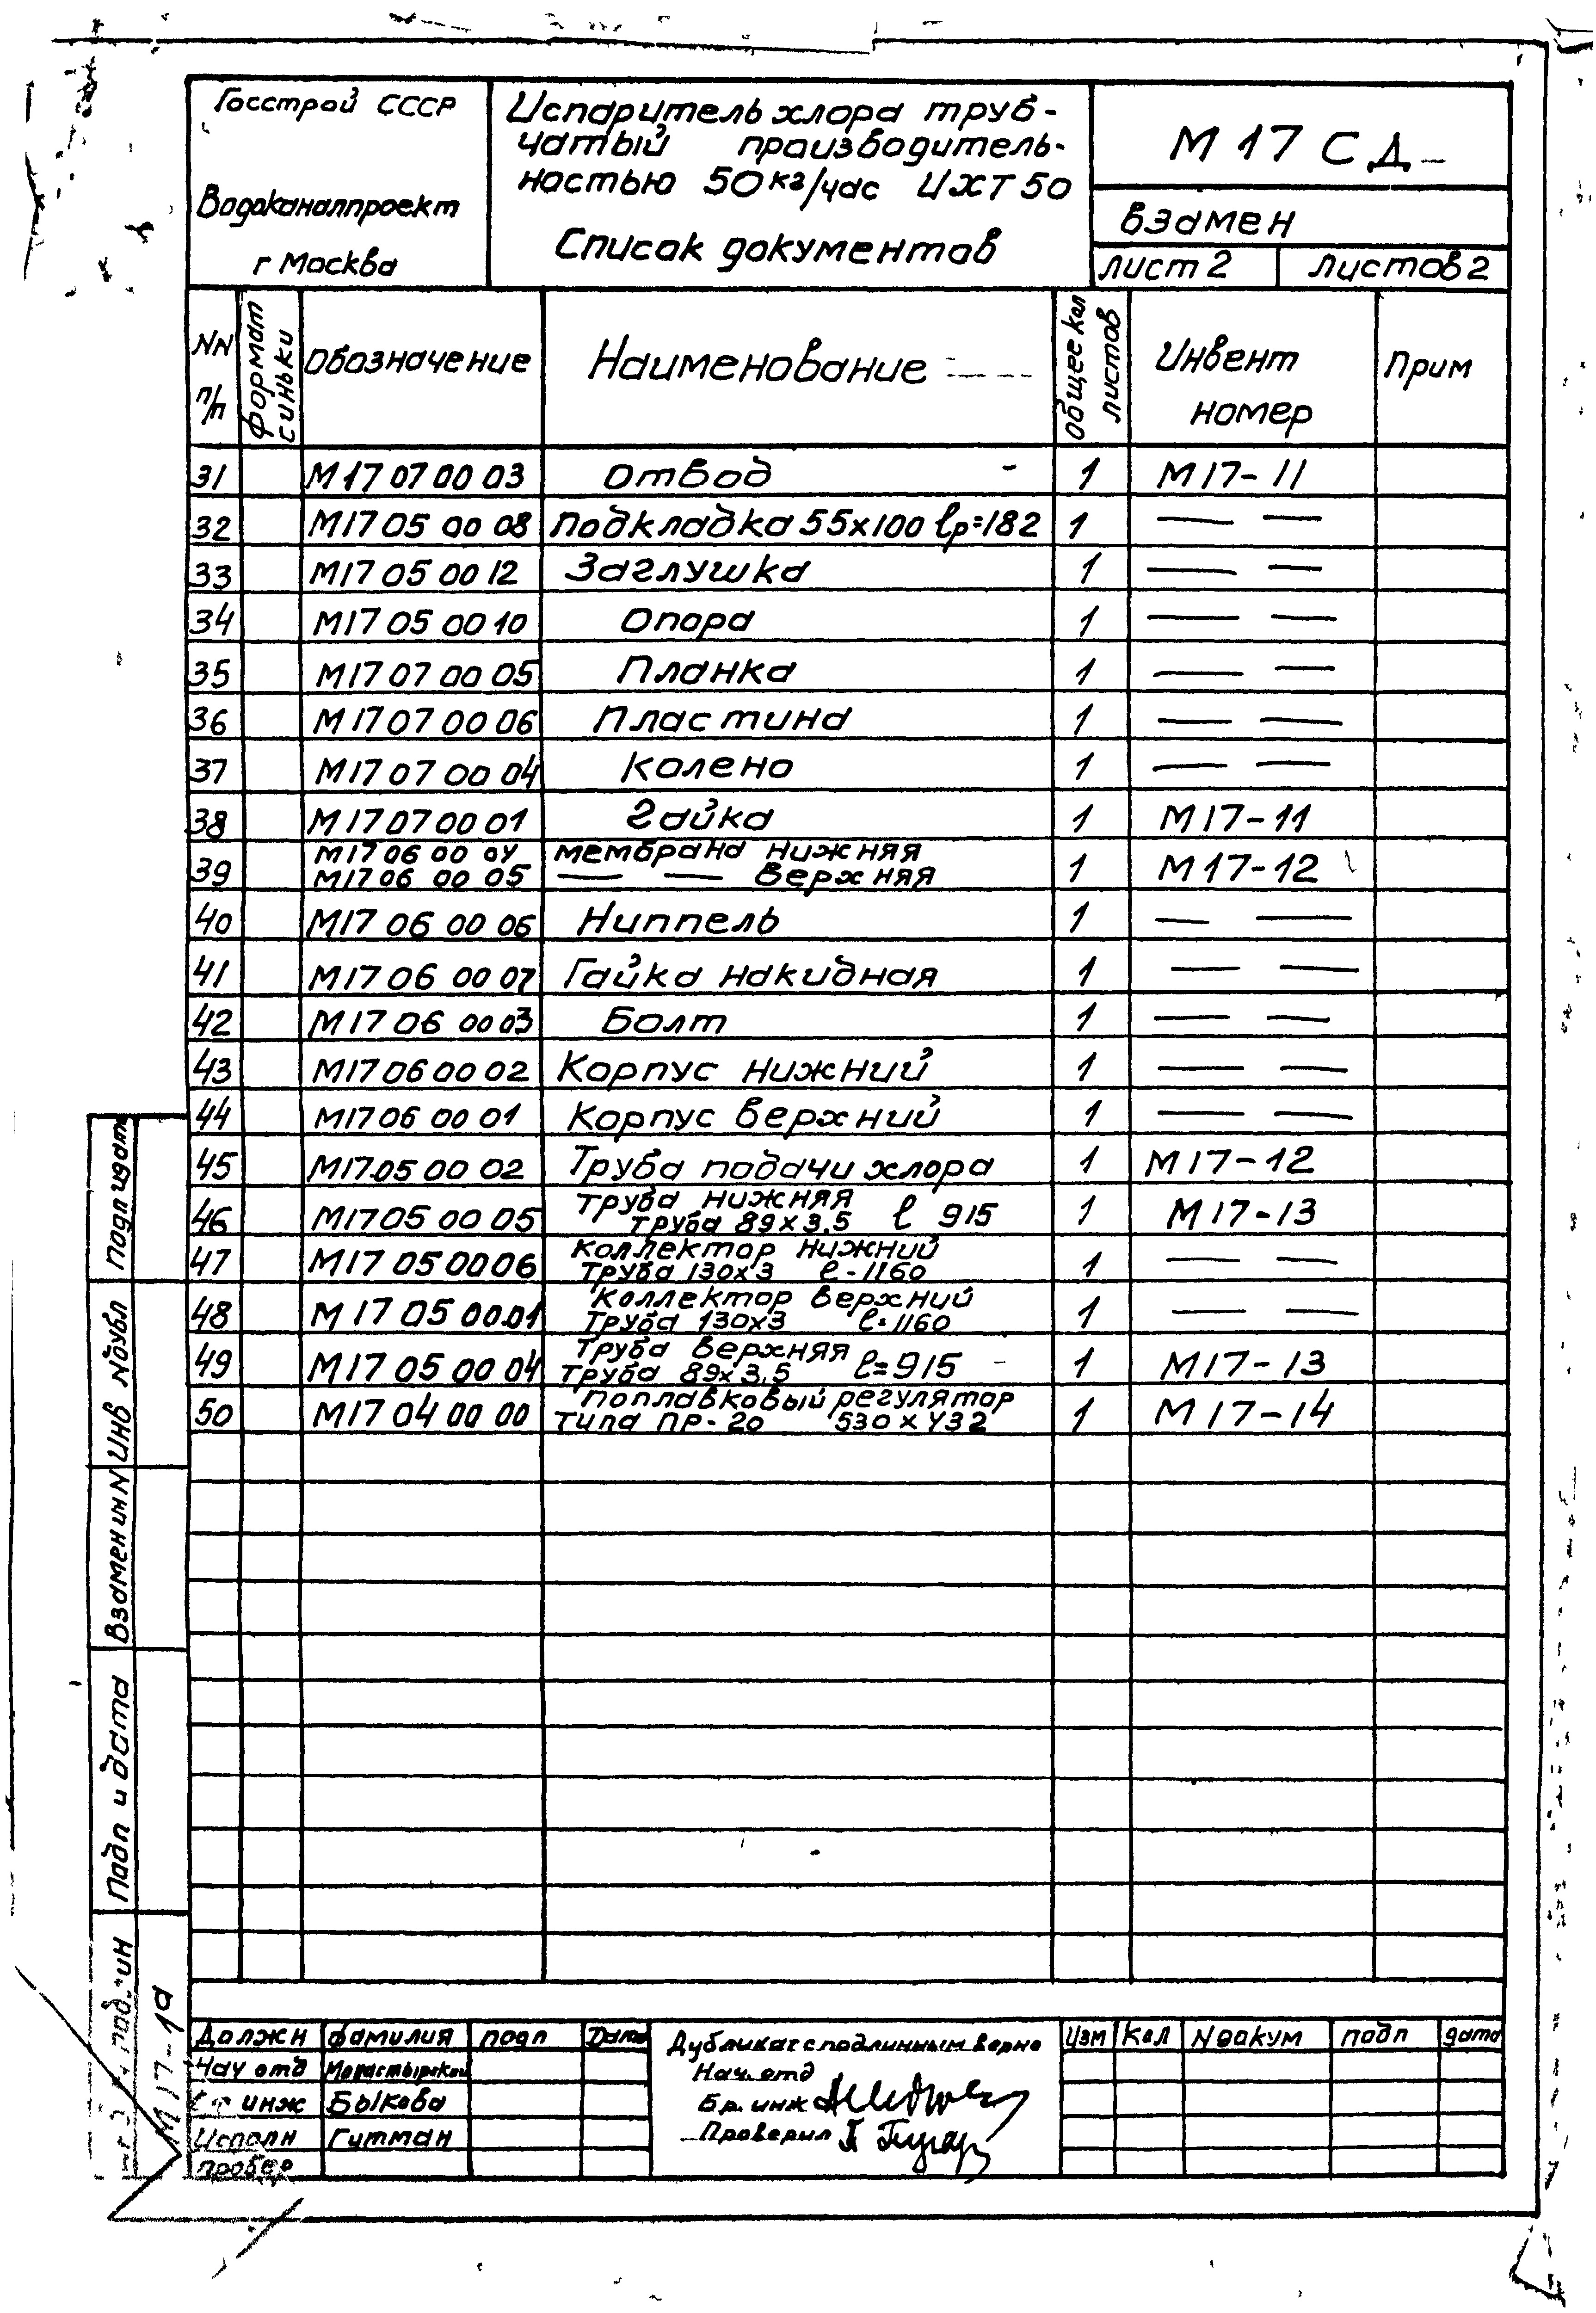 Госстрой СССР
Водоканалпроект
г Москва
Испаритель хлора труб-
чатый производитель-
ностью 50 кг/час ИХТ 50
Список документов
М 17 СД
взамен
лист 2 листов 2
NN п/п формат синьки Обозначение Наименование общее кол листов Инвент номер Прим
31 М17 07 00 03 отвод - 1 М17-11
32 М17 05 00 08 подкладка 55х100 ℓр=182 1 — —
33 М17 05 00 12 Заглушка 1 — —
34 М17 05 00 10 Опора 1 — —
35 М17 07 00 05 Планка 1 — —
36 М17 07 00 06 Пластина 1 — —
37 М17 07 00 04 колено 1 — —
38 М17 07 00 01 гайка 1 М17-11
39 М17 06 00 04 мембрана нижняя
М17 06 00 05 — — верхняя 1 М17-12
40 М17 06 00 06 Ниппель 1 — —
41 М17 06 00 07 Гайка накидная 1 — —
42 М17 06 00 03 Болт 1 — —
43 М17 06 00 02 Корпус нижний 1 — —
44 М17 06 00 01 Корпус верхний 1 — —
45 М17.05 00 02 Труба подачи хлора 1 М17-12
46 М17 05 00 05 труба нижняя
труба 89х3.5 ℓ 915 1 М17-13
47 М17 05 00 06 коллектор нижний
труба 130х3 ℓ-1160 1 — —
48 М 17 05 00.01 коллектор верхний
труба 130х3 ℓ=1160 1 — —
49 М17 05 00 04 труба верхняя
труба 89х3,5 ℓ=915 - 1 М17-13
50 М17 04 00 00 поплавковый регулятор
типа ПР-20 530х432 1 М17-14
подп и дата
Инв №дубл
Взамен ин N
подп и дата
М17-1а
Должн фамилия подп Дата
Нач отд Монастырский
инж Быкова
Исполн Гитман
провер
Дубликат с подлинным верно
Нач. отд
Бр. инж
Проверил
Изм Кол №докум подп дата